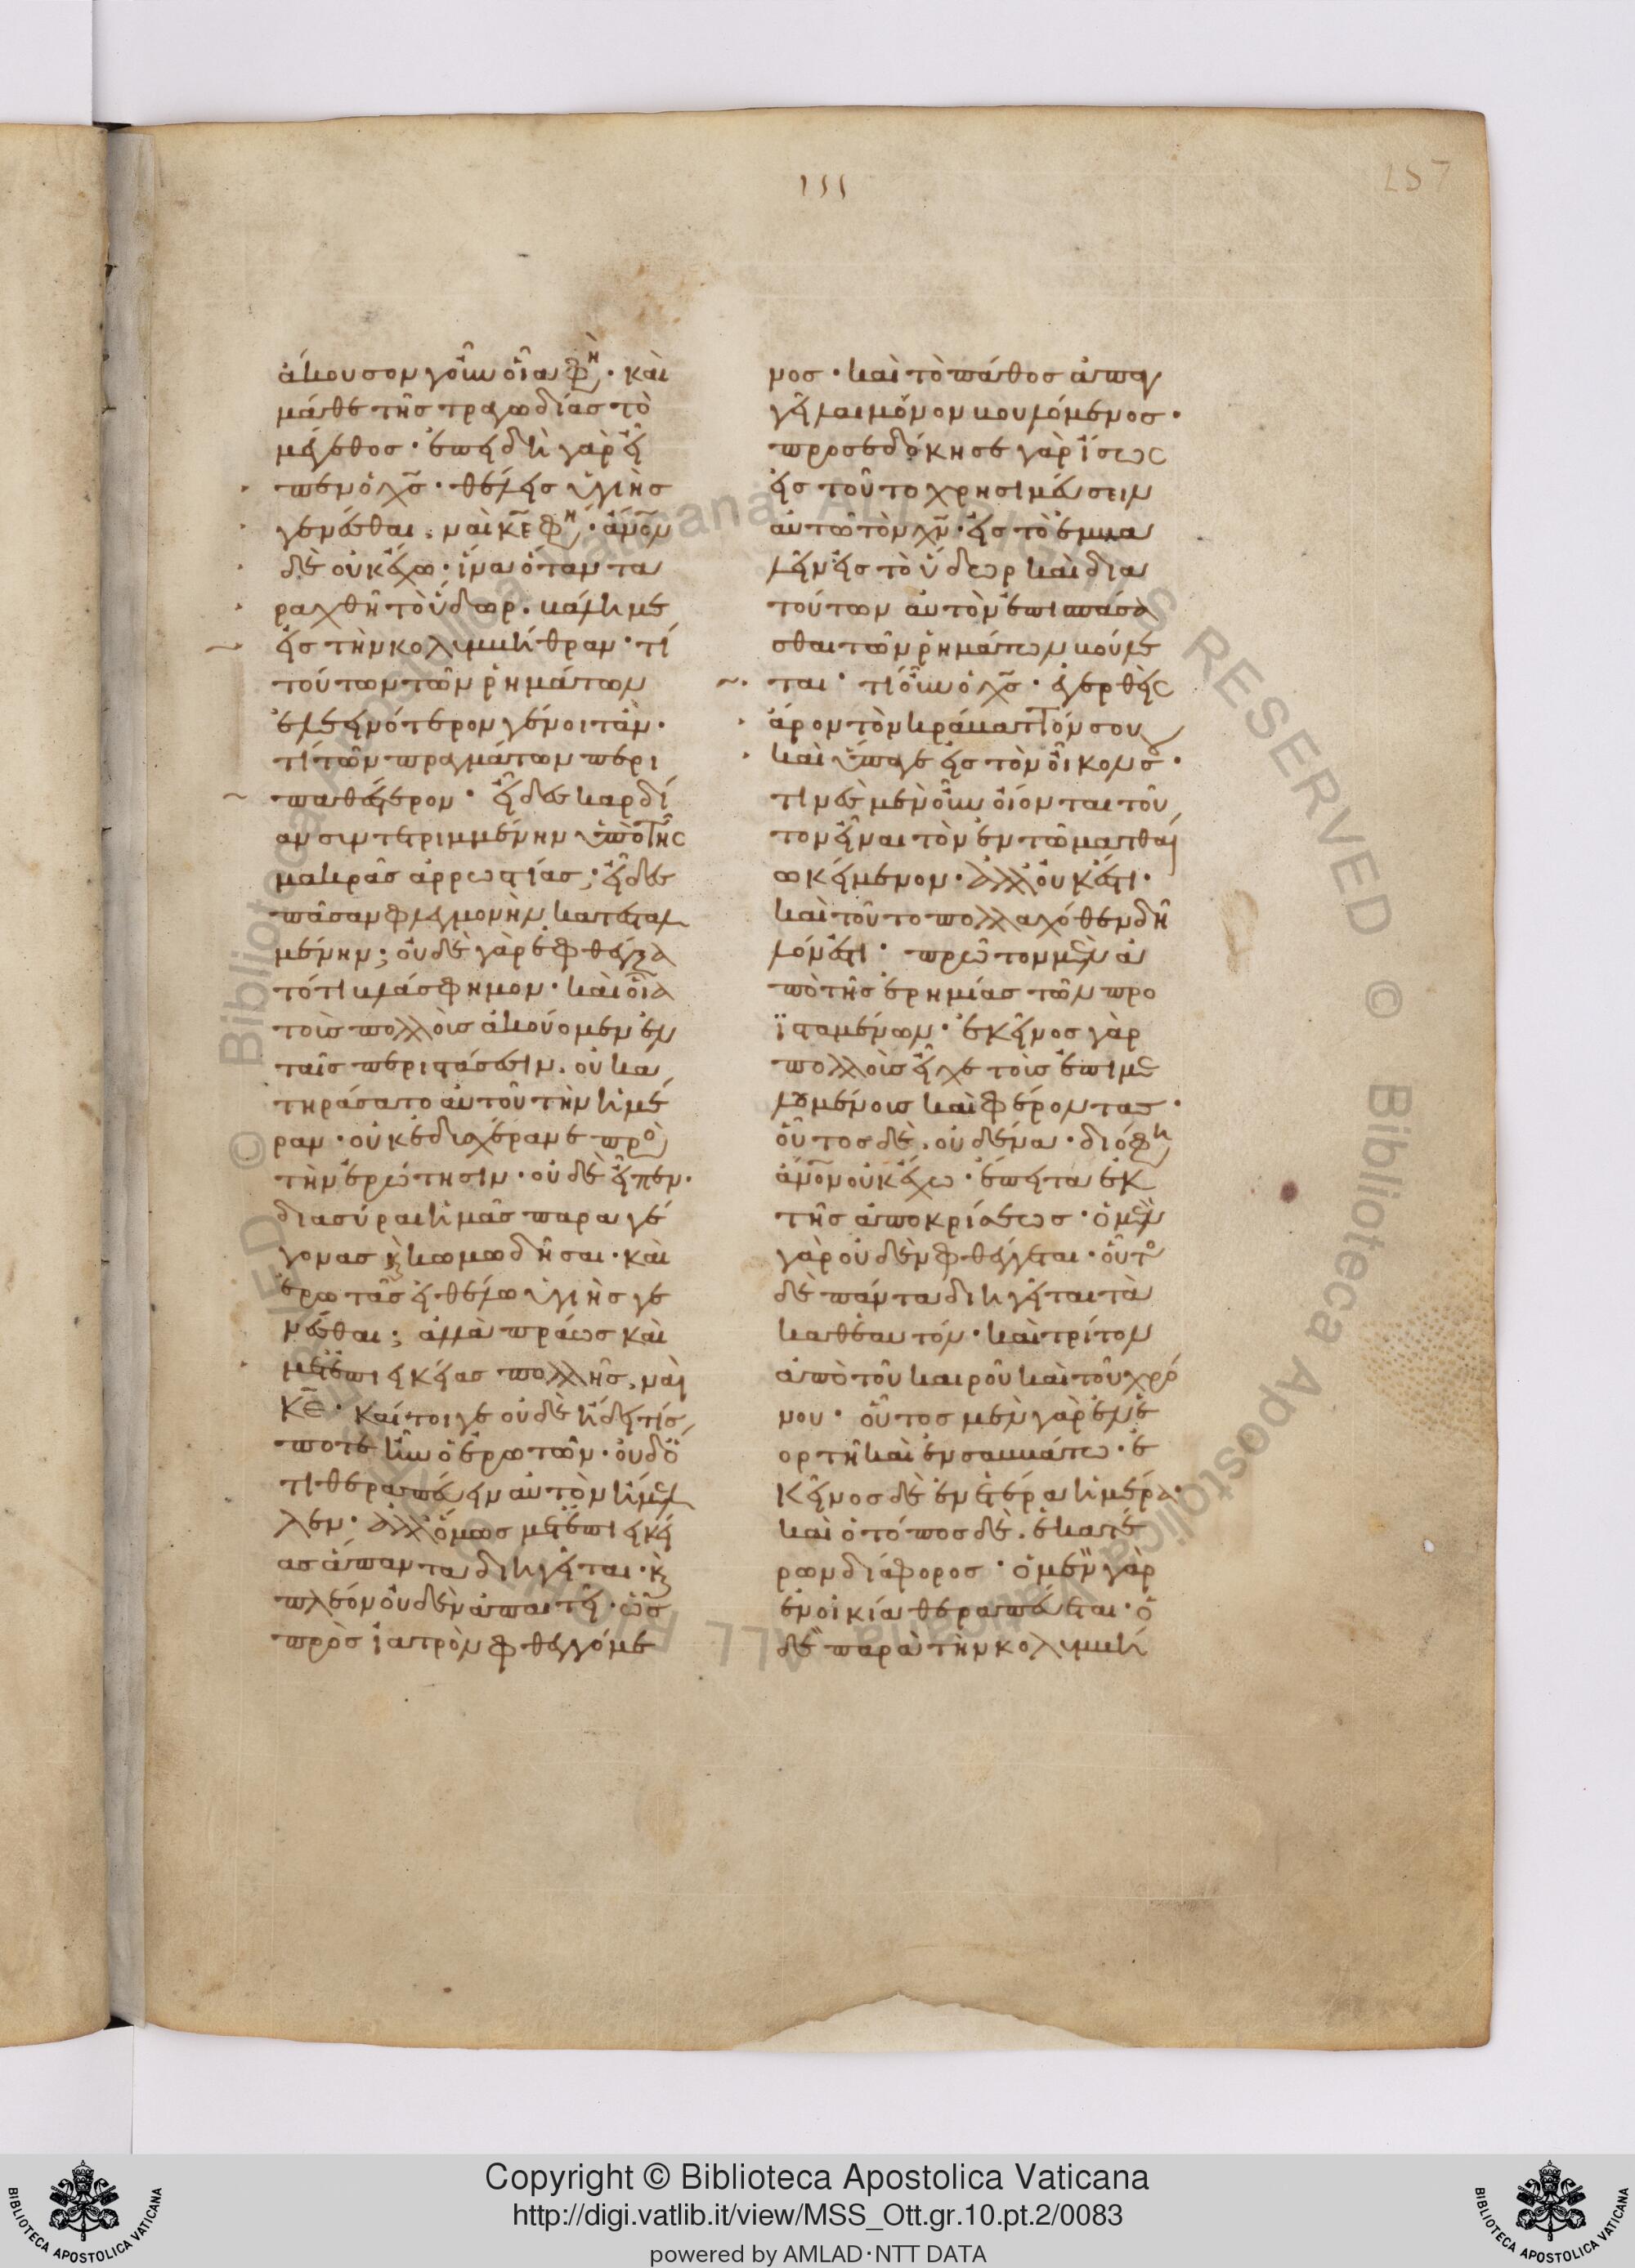 ιιι
257
ἄκουσον γοῦν οἷα φη · καὶ
μάθε τῆς τραγωδίας τὸ
μέγεθος · ἐπειδὴ γὰρ εἶ
πεν ὁ χς · θέλεις ὑγιὴς
γενέσθαι · ναὶ κε φη · ἄνον
δὲ οὐκ ἔχω · ἵνα ὅταν τα
ραχθῆ τὸ ὕδωρ · βάλη με
εἰς τὴν κολυμβήθραν · τί
τούτων τῶν ῥημάτων
ἐλεεινότερον γένοιτ ἄν ·
τί τῶν πραγμάτων περι
παθέστερον · εἶδες καρδί
αν συντετριμμένην ὑπὸ τῆς
μακρᾶς ἀρρωστίας ; εἶδες
πᾶσαν φλεγμονὴν κατεσταλ
μένην ; οὐδὲ γὰρ ἐφθέγξα
τό τι βλάσφημον · καὶ οἷα
τοῖς πολλοῖς ἀκούομεν ἐν
ταῖς περιστάσεσιν · οὐ κα
τηράσατο αὐτοῦ τὴν ἡμέ
ραν · οὐκ ἐδυσχέρανε πρὸ
τὴν ἐρώτησιν · οὐδὲ εἶπεν ·
διασύραι ἡμᾶς παραγέ
γονας κ κωμωδῆσαι · καὶ
ἐρωτᾶς εἰ θέλω ὑγιὴς γε
νέσθαι ; ἀλλὰ πράως καὶ
μετ ἐπιεικείας πολλῆς · ναὶ
κε · καίτοιγε οὐδὲ ἤδει τίς
ποτε ἦν ὁ ἐρωτῶν · οὐδ ὅ
τι θεραπεύειν αὐτὸν ἤμελ
λεν · ἀλλ ὅμως μετ ἐπιεικεί
ας ἅπαντα διηγεῖται · κ
πλέον οὐδὲν ἀπαιτεῖ · ὡς
πρὸς ἰατρὸν φθεγγόμε
νος · καὶ τὸ πάθος ἀπαγ
γεῖλαι μόνον βουλόμενος ·
προσεδόκησε γὰρ ἴσως
εἰς τοῦτο χρησιμεύσειν
αὐτῶ τὸν χν · εἰς τὸ ἐμβα
λεῖν εἰς τὸ ὕδωρ καὶ δια
τούτων αὐτὸν ἐπισπάσα
σθαι τῶν ῥημάτων βούλε
ται · τί οὖν ὁ χς · ἐγερθεὶς
ἆρον τὸν κράβαττόν σου
καὶ ὕπαγε εἰς τὸν οἶκον σου ·
τινὲς μὲν οὖν οἴονται τοῦ
τον εἶναι τὸν ἐν τῶ ματθαί
ω κείμενον · ἀλλ οὐκ ἔστι ·
καὶ τοῦτο πολλαχόθεν δῆ
λόν ἐστι · πρῶτον μὲν ἀ
πὸ τῆς ἐρημίας τῶν προ
ϊσταμένων · ἐκεῖνος γὰρ
πολλοὺς εἶχε τοὺς ἐπιμε
λουμένους καὶ φέροντας ·
οὗτος δὲ · οὐδένα · διό φη
ἄνον οὐκ ἔχω · ἔπειτα ἐκ
τῆς ἀποκρίσεως · ὁ μὲν
γὰρ οὐδὲν φθέγγεται · οὗτος
δὲ πάντα διηγεῖται τὰ
καθ ἑαυτόν · καὶ τρίτον
ἀπὸ τοῦ καιροῦ καὶ τοῦ χρό
νου · οὗτος μὲν γὰρ ἐν ἑ
ορτῆ καὶ ἐν σαββάτω · ἐ
κεῖνος δὲ ἐν ἑτέρα ἡμέρα ·
καὶ ὁ τόπος δὲ · ἑκατέ
ρων διάφορος · ὁ μὲν γὰρ
ἐν οἰκία θεραπεύεται · ὁ
δὲ παρὰ τὴν κολυμβή
© Biblioteca Apostolica Vaticana ALL RIGHTS RESERVED © Biblioteca Apostolica Vaticana ALL RIGHTS RESERVED
BIBLIOTECA APOSTOLICA VATICANA
Copyright © Biblioteca Apostolica Vaticana
http://digi.vatlib.it/view/MSS_Ott.gr.10.pt.2/0083
powered by AMLAD·NTT DATA
BIBLIOTECA APOSTOLICA VATICANA